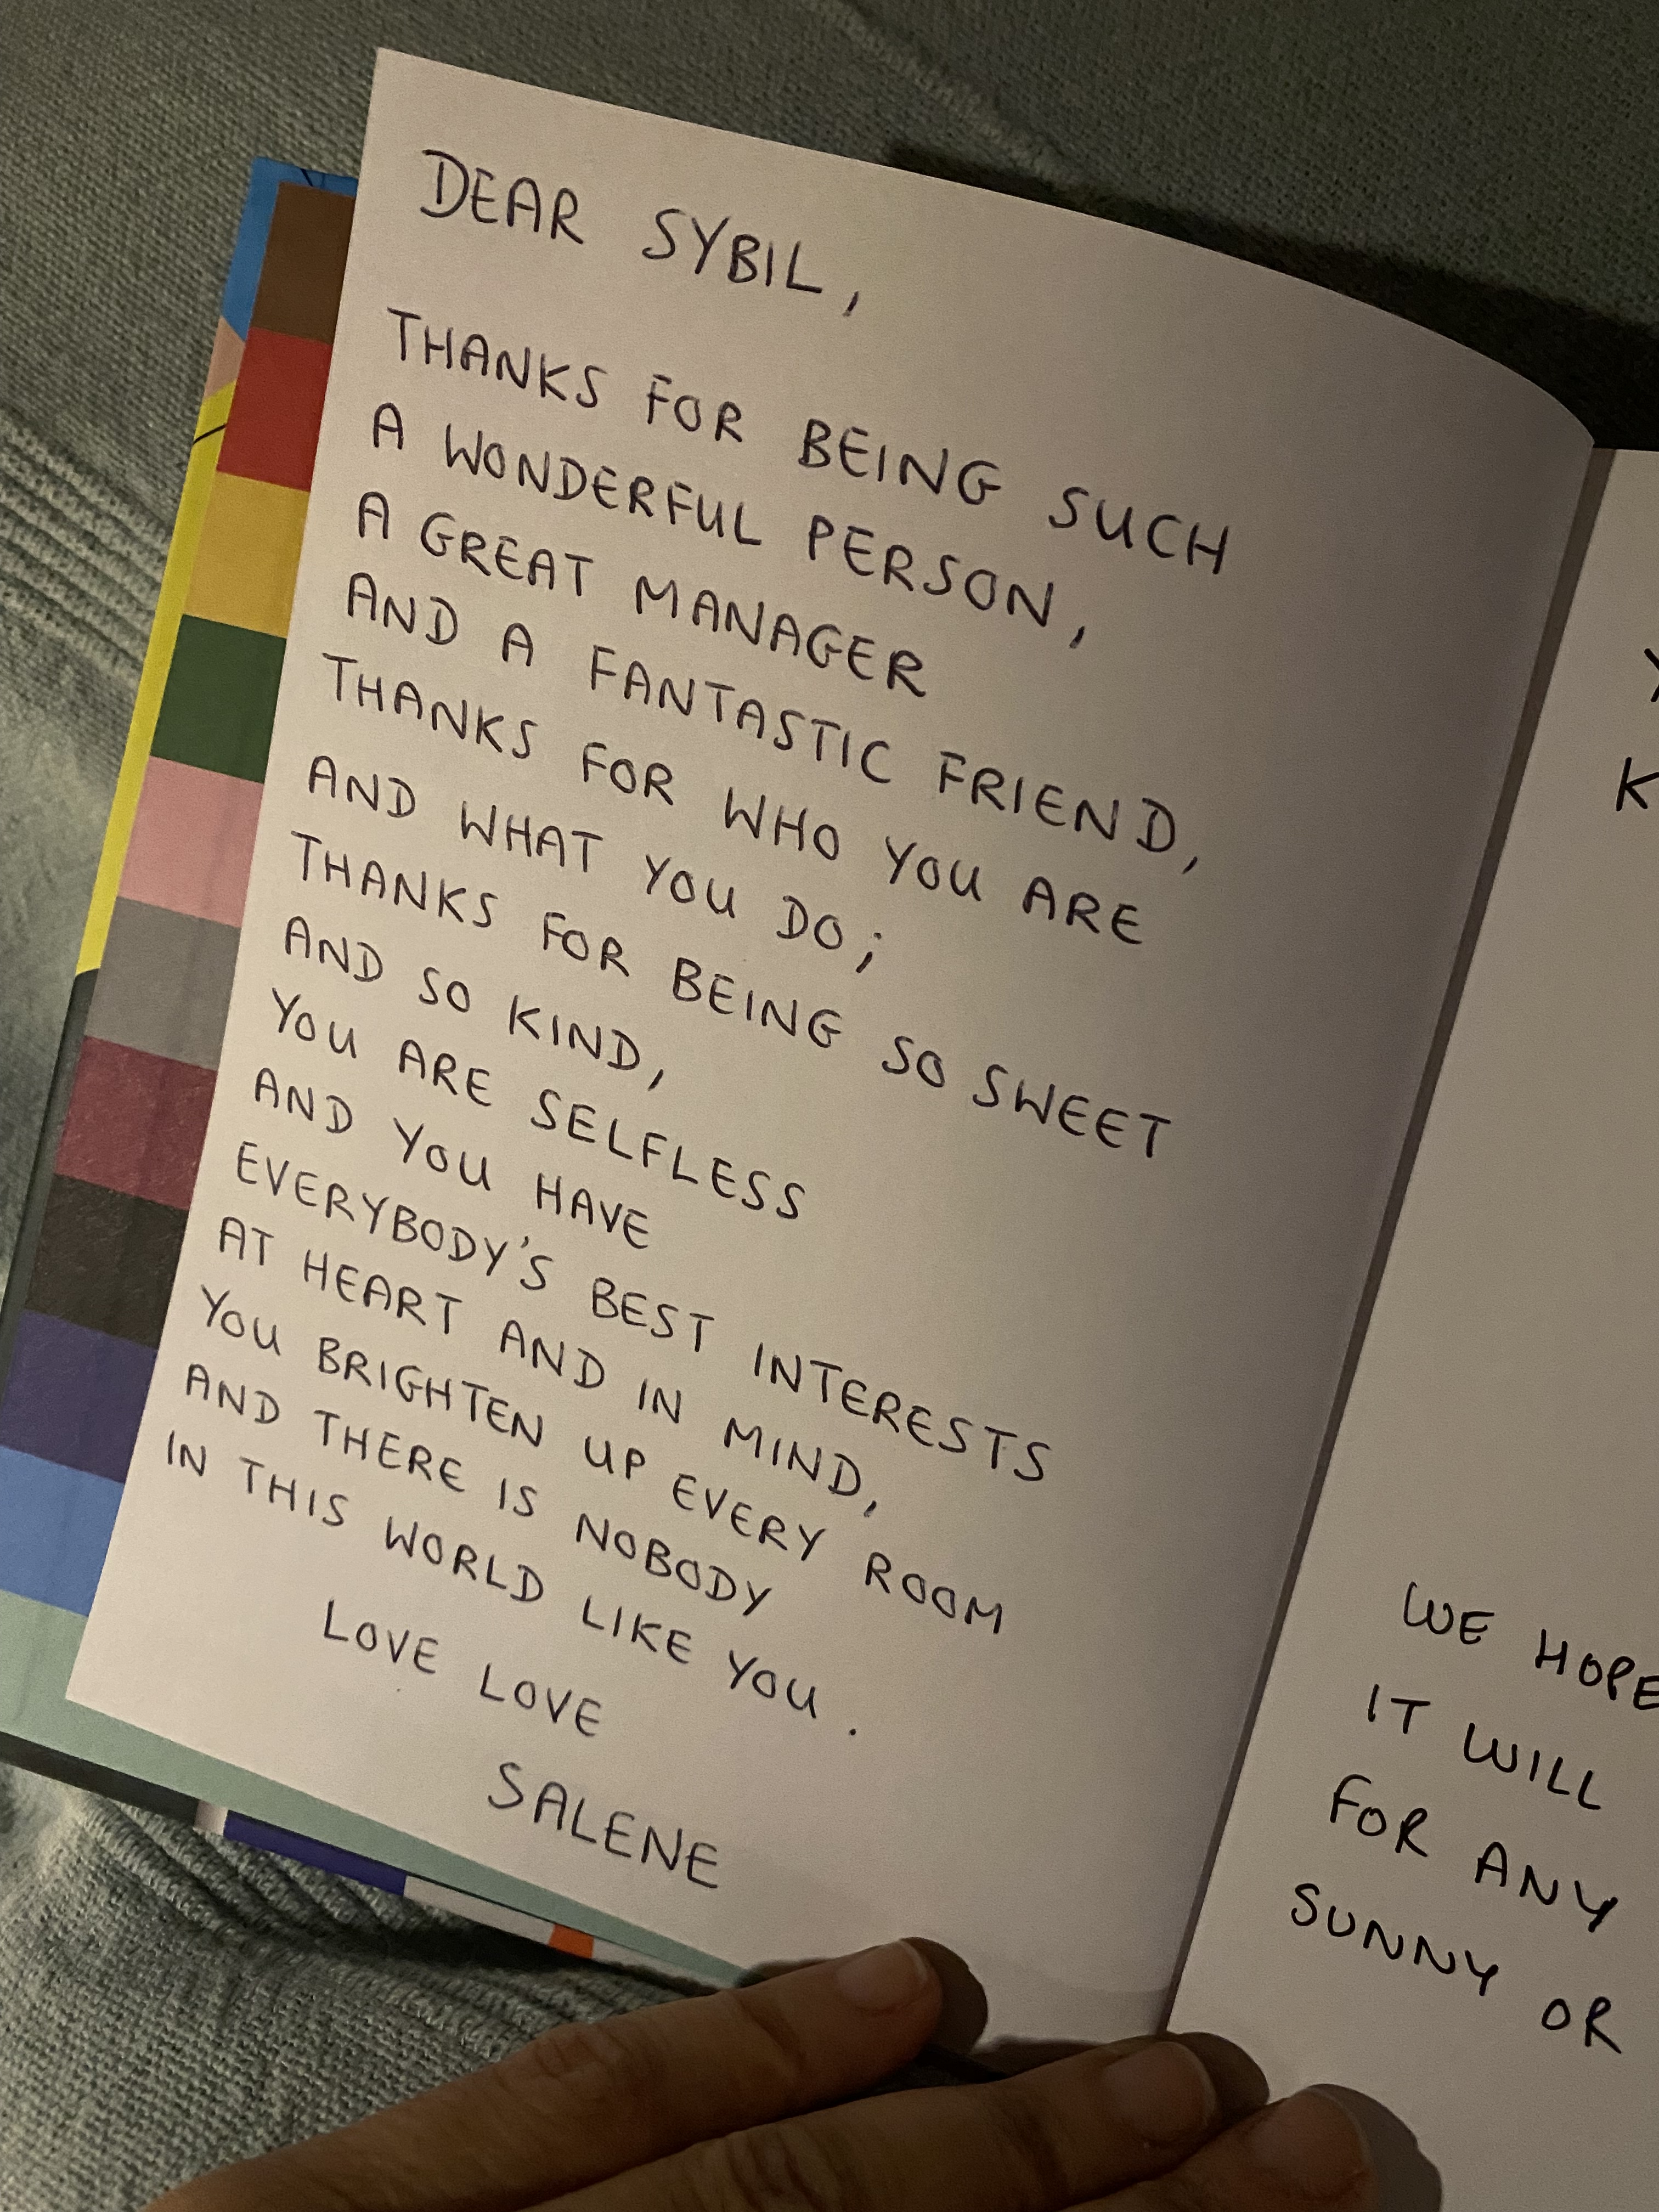 DEAR SYBIL,
THANKS FOR BEING SUCH
A WONDERFUL PERSON,
A GREAT MANAGER
AND A FANTASTIC FRIEND,
THANKS FOR WHO YOU ARE
AND WHAT YOU DO;
THANKS FOR BEING SO SWEET
AND SO KIND,
YOU ARE SELFLESS
AND YOU HAVE
EVERYBODY'S BEST INTERESTS
AT HEART AND IN MIND,
YOU BRIGHTEN UP EVERY ROOM
AND THERE IS NOBODY
IN THIS WORLD LIKE YOU.
LOVE LOVE
SALENE
WE HOPE
IT WILL
FOR ANY
SUNNY OR